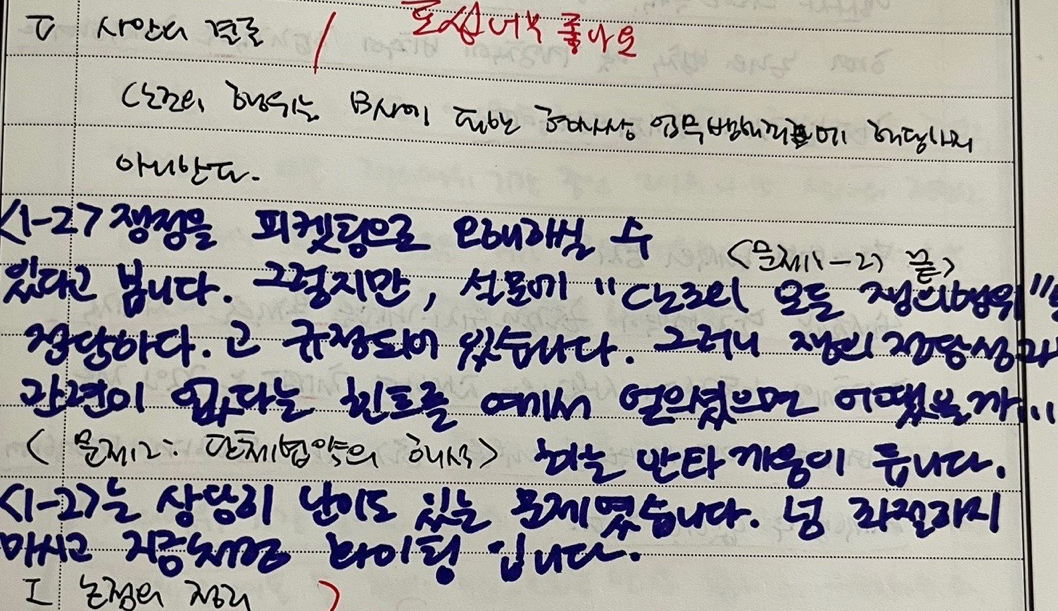 V 사안의 결론
포섭 너무 좋아요
C노조의 행위는 B사에 대한 형사상 업무방해죄에 해당하지
아니한다.
<1-2> 쟁점을 피켓팅으로 오해하실 수
<문제1-2> 끝>
있다고 봅니다. 그렇지만, 설문에 "C노조의 모든 쟁의행위"는
정당하다. 고 규정되어 있습니다. 그러니 쟁의 정당성과
관련이 없다는 힌트를 예서 얻으셨으면 어땠을까...
<문제2: 단체협약의 해석> 하는 안타까움이 듭니다.
<1-2>는 상당히 난이도 있는 문제였습니다. 넘 좌절하지
마시고 지금처럼 화이팅 입니다.
I 논점의 정리